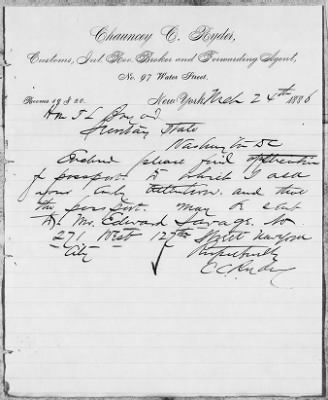 Chauncey C. Ryder,
Customs, Int. Rev. Broker and Forwarding Agent,
No. 97 Water Street.
Rooms 19 & 20.
New York, Mch 24th 1886
Secretary State
Washington DC
Enclosed please find
to which I ask
your early attention and that
the may be sent
to Mr. Edward Savage No
271 West 127th Street New York
City
Respectfully
C C Ryder